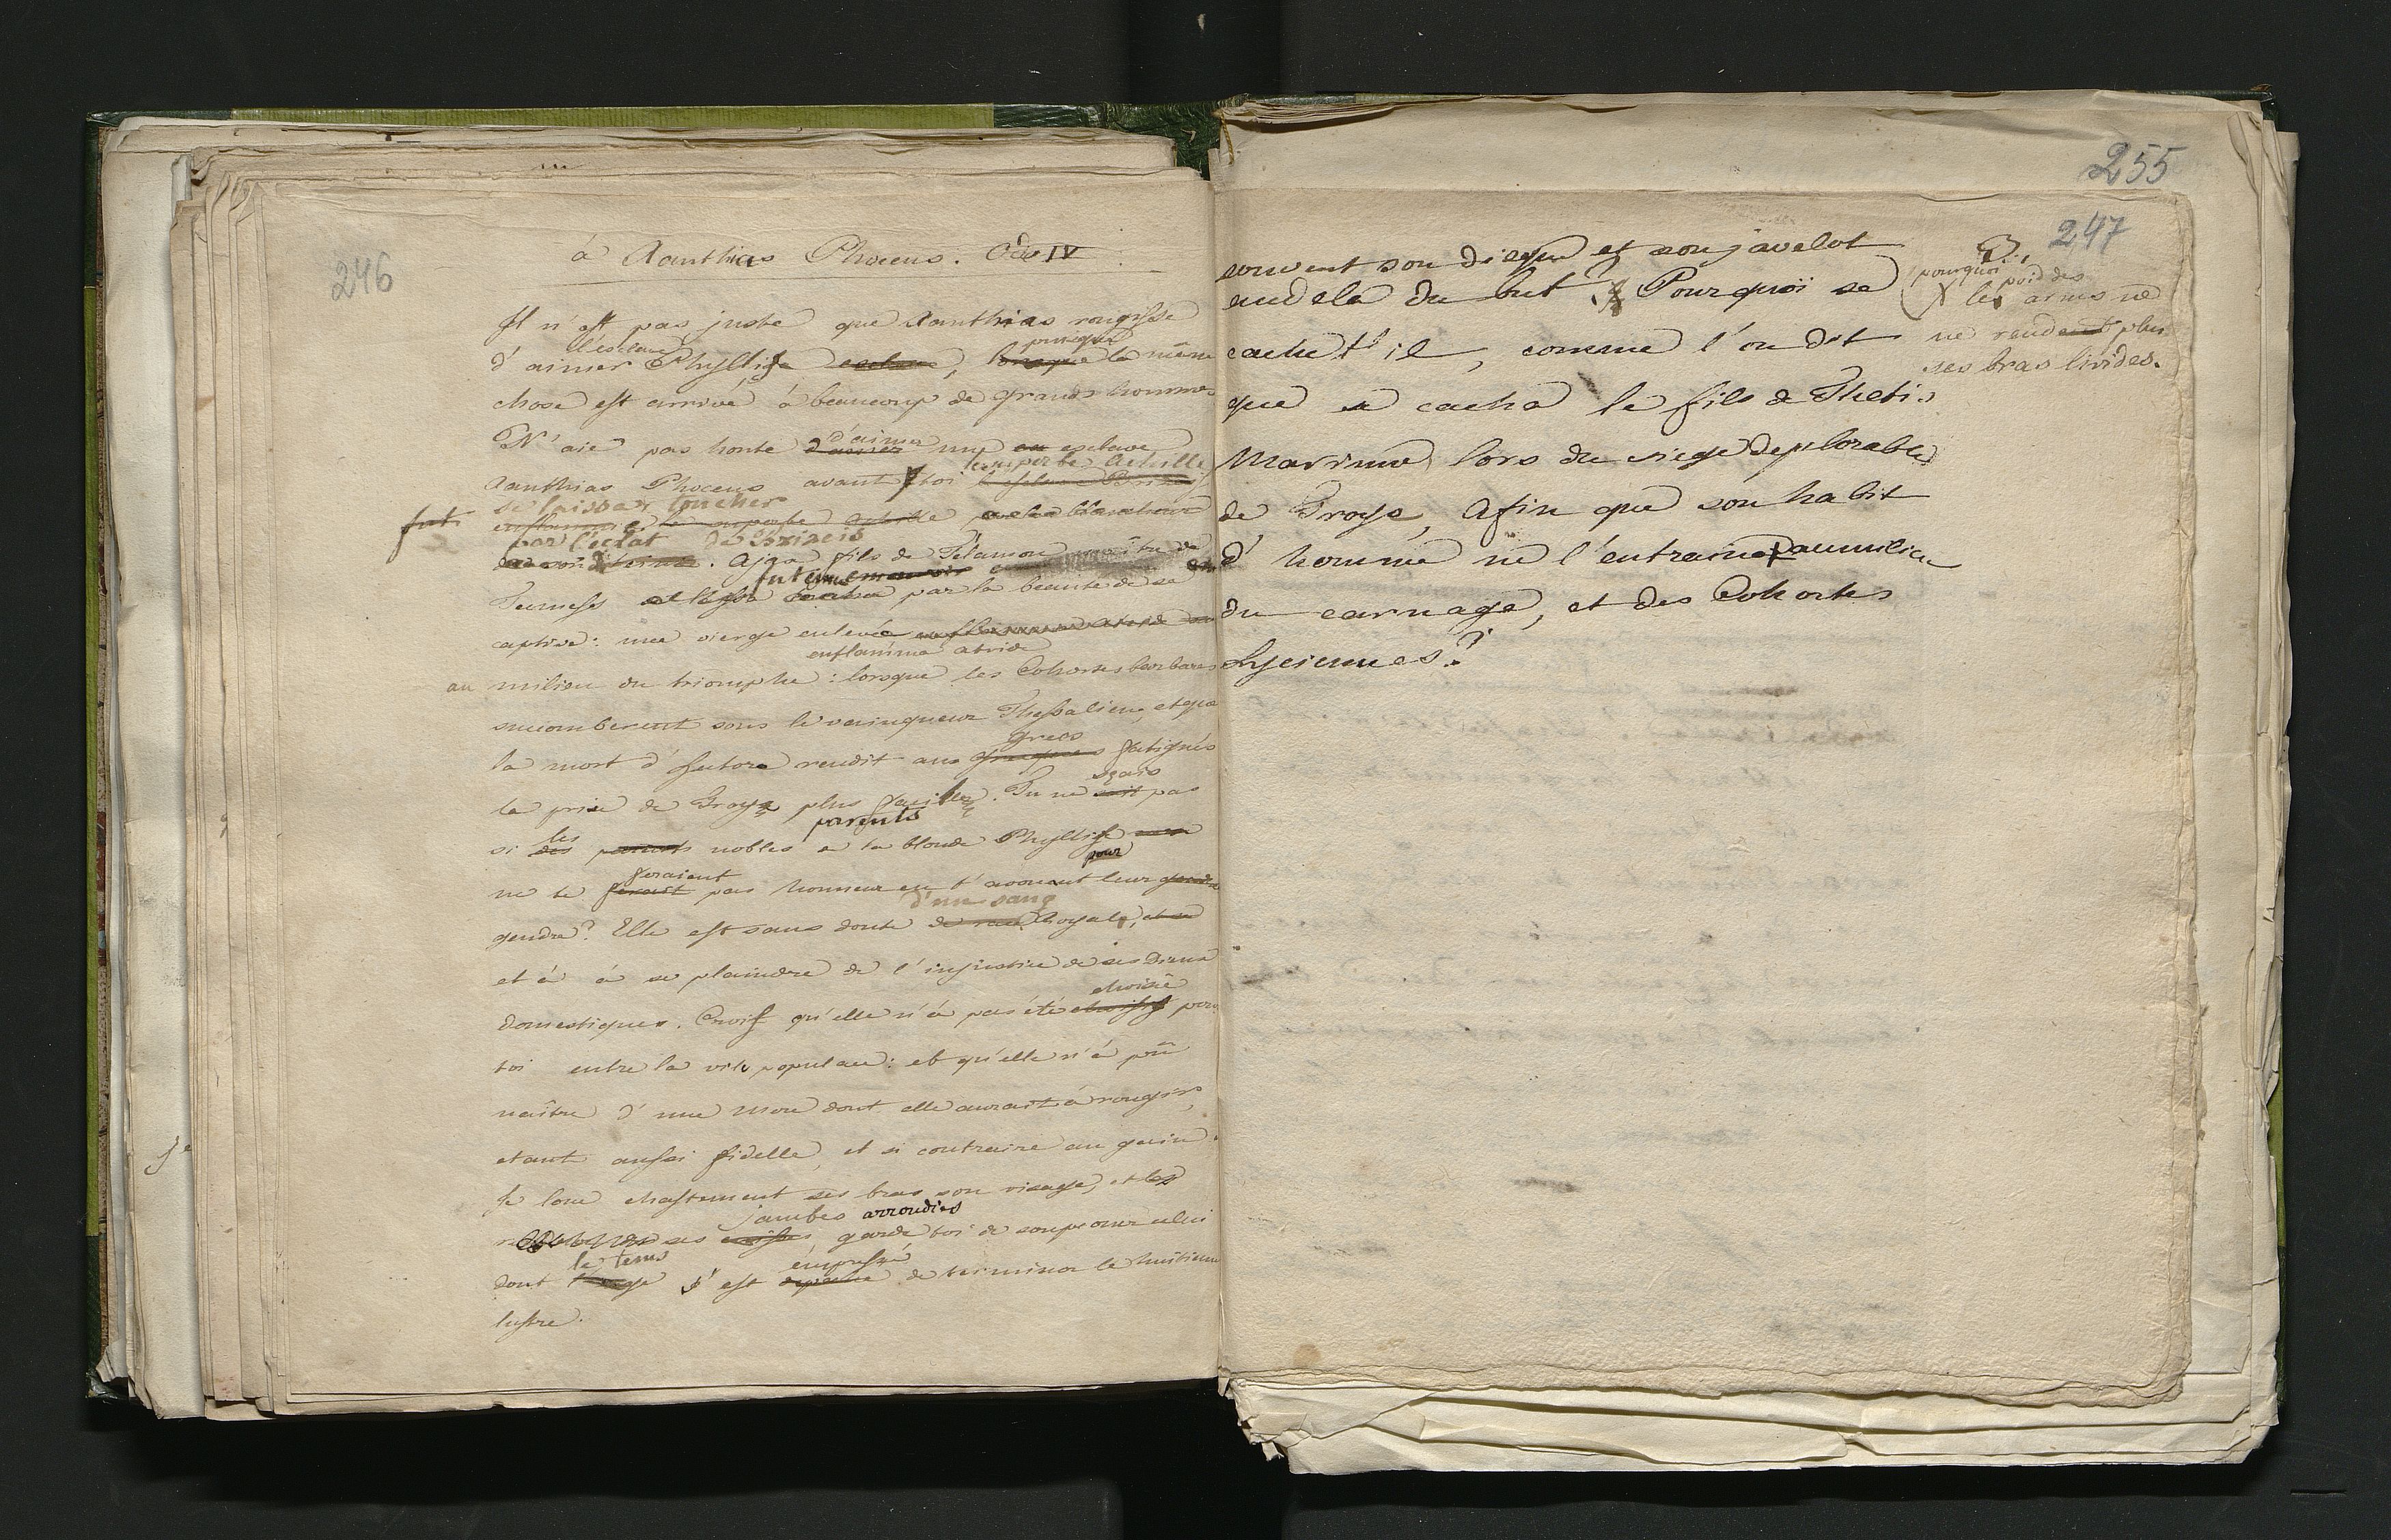 246
à Xanthias Phoceus. Ode IV
Il n'est pas juste que Xanthias rougisse
l'esclave puisque
d'aimer Phyllis esclave, lorsque la même
chose est arrivé à beaucoup de grands hommes
d'aimer
N'aie pas honte d'aimer une esclave
le superbe Achille
Xanthias Phoceus avant toi l'esclave Briseis
se laissa toucher
fut enflammé le superbe Achille par la blancheur
par l'éclat de Briseis
de son teint. Ajax fils de Télamon maître de
fut
Tecmesse par la beauté de sa
captive: une vierge enlevée
enflamma atride
au milieu du triomphe: lorsque les Cohortes barbares
succomberent sous le vainqueur Thessalien, et que
grecs
la mort d'hector rendit aux grecques fatignés
sçais
la prise de Troye plus facile. Tu ne sait pas
les parents
si des parents nobles de la blonde Phyllis
pour
feraient
ne te ferait pas honneur en t'avouant leur gendre
d'un sang
gendre? Elle est sans doute de race Royale, et a
et à à se plaindre de l'injustice de ses Dieux
choisie
domestiques. Crois qu'elle n'à pas été choisie pour
toi entre la vile populace: et qu'elle n'à pu
naître d'une mere dont elle aurait à rougir,
etant aussi fidelle, et si contraire au gain.
Je loue chastement ses bras son visage, et les
jambes arrondies
ses garde toi de soupconner celui
le tems empressé
dont l'age s'est de terminer le huitieme
lustre.
255
247
souvent son disque et son javelot
audela du but? Pourquoi se
cache t'il, comme l'on dit
que se cacha le fils de Thetis
Marine, lors du siege deplorable
de Troye, Afin que son habit
d'homme ne l'entraina au milieu
du carnage, et des Cohortes
Lyciennes?
pourquoi
poid des
X les armes ne
ne rendent plus
ses bras livides.